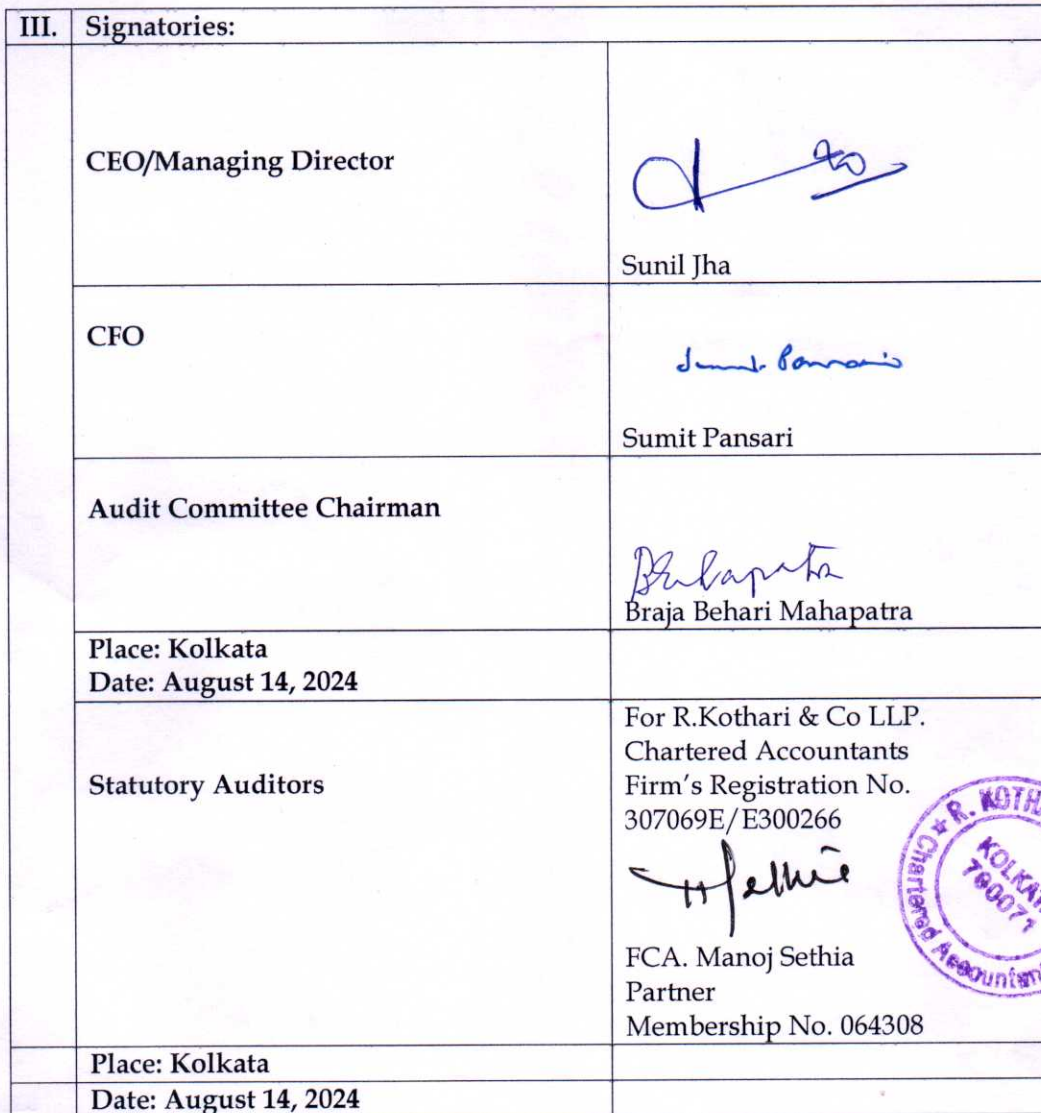 III. Signatories:
CEO/Managing Director
Sunil Jha
CFO
Sumit Pansari
Audit Committee Chairman
Braja Behari Mahapatra
Place: Kolkata
Date: August 14, 2024
Statutory Auditors
For R.Kothari & Co LLP.
Chartered Accountants
Firm's Registration No.
307069E/E300266
FCA. Manoj Sethia
Partner
Membership No. 064308
R. KOTH
Chartered Accountan
KOLKAT
700071
Place: Kolkata
Date: August 14, 2024